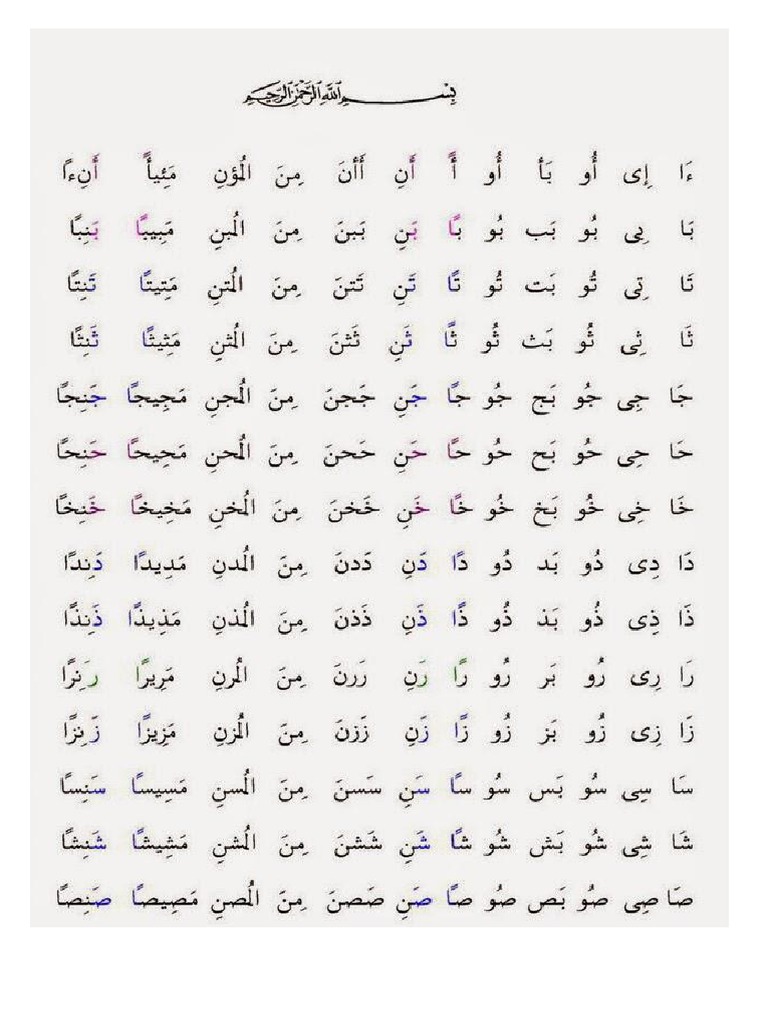 بِسْمِ اللَّهِ الرَّحْمَٰنِ الرَّحِيمِ
ءَا إِى أُو بَأ أُو أً أَنِ أَأنَ مِنَ الُمؤنِ مَئِيأً أَنِءاً
بَا بِى بُو بَب بُو بًا بَنِ بَبنَ مِنَ الُمبنِ مَبِيبًا بَنِبًا
تَا تِى تُو بَت تُو تًا تَنِ تَتنَ مِنَ الُمتنِ مَتِيتًا تَنِتًا
ثَا ثِى ثُو بَث ثُو ثًا ثَنِ ثَثنَ مِنَ الُمثنِ مَثِيثًا ثَنِثًا
جَا جِى جُو بَج جُو جًا جَنِ جَجنَ مِنَ الُمجنِ مَجِيجًا جَنِجًا
حَا حِى حُو بَح حُو حًا حَنِ حَحنَ مِنَ الُمحنِ مَحِيحًا حَنِحًا
خَا خِى خُو بَخ خُو خًا خَنِ خَخنَ مِنَ الُمخنِ مَخِيخًا خَنِخًا
دَا دِى دُو بَد دُو دًا دَنِ دَدنَ مِنَ الُمدنِ مَدِيدًا دَنِدًا
ذَا ذِى ذُو بَذ ذُو ذًا ذَنِ ذَذنَ مِنَ الُمذنِ مَذِيذًا ذَنِذًا
رَا رِى رُو بَر رُو رًا رَنِ رَرنَ مِنَ الُمرنِ مَرِيرًا رَنِرًا
زَا زِى زُو بَز زُو زًا زَنِ زَزنَ مِنَ الُمزنِ مَزِيزًا زَنِزًا
سَا سِى سُو بَس سُو سًا سَنِ سَسنَ مِنَ الُمسنِ مَسِيسًا سَنِسًا
شَا شِى شُو بَش شُو شًا شَنِ شَشنَ مِنَ الُمشنِ مَشِيشًا شَنِشًا
صَا صِى صُو بَص صُو صًا صَنِ صَصنَ مِنَ الُمصنِ مَصِيصًا صَنِصًا